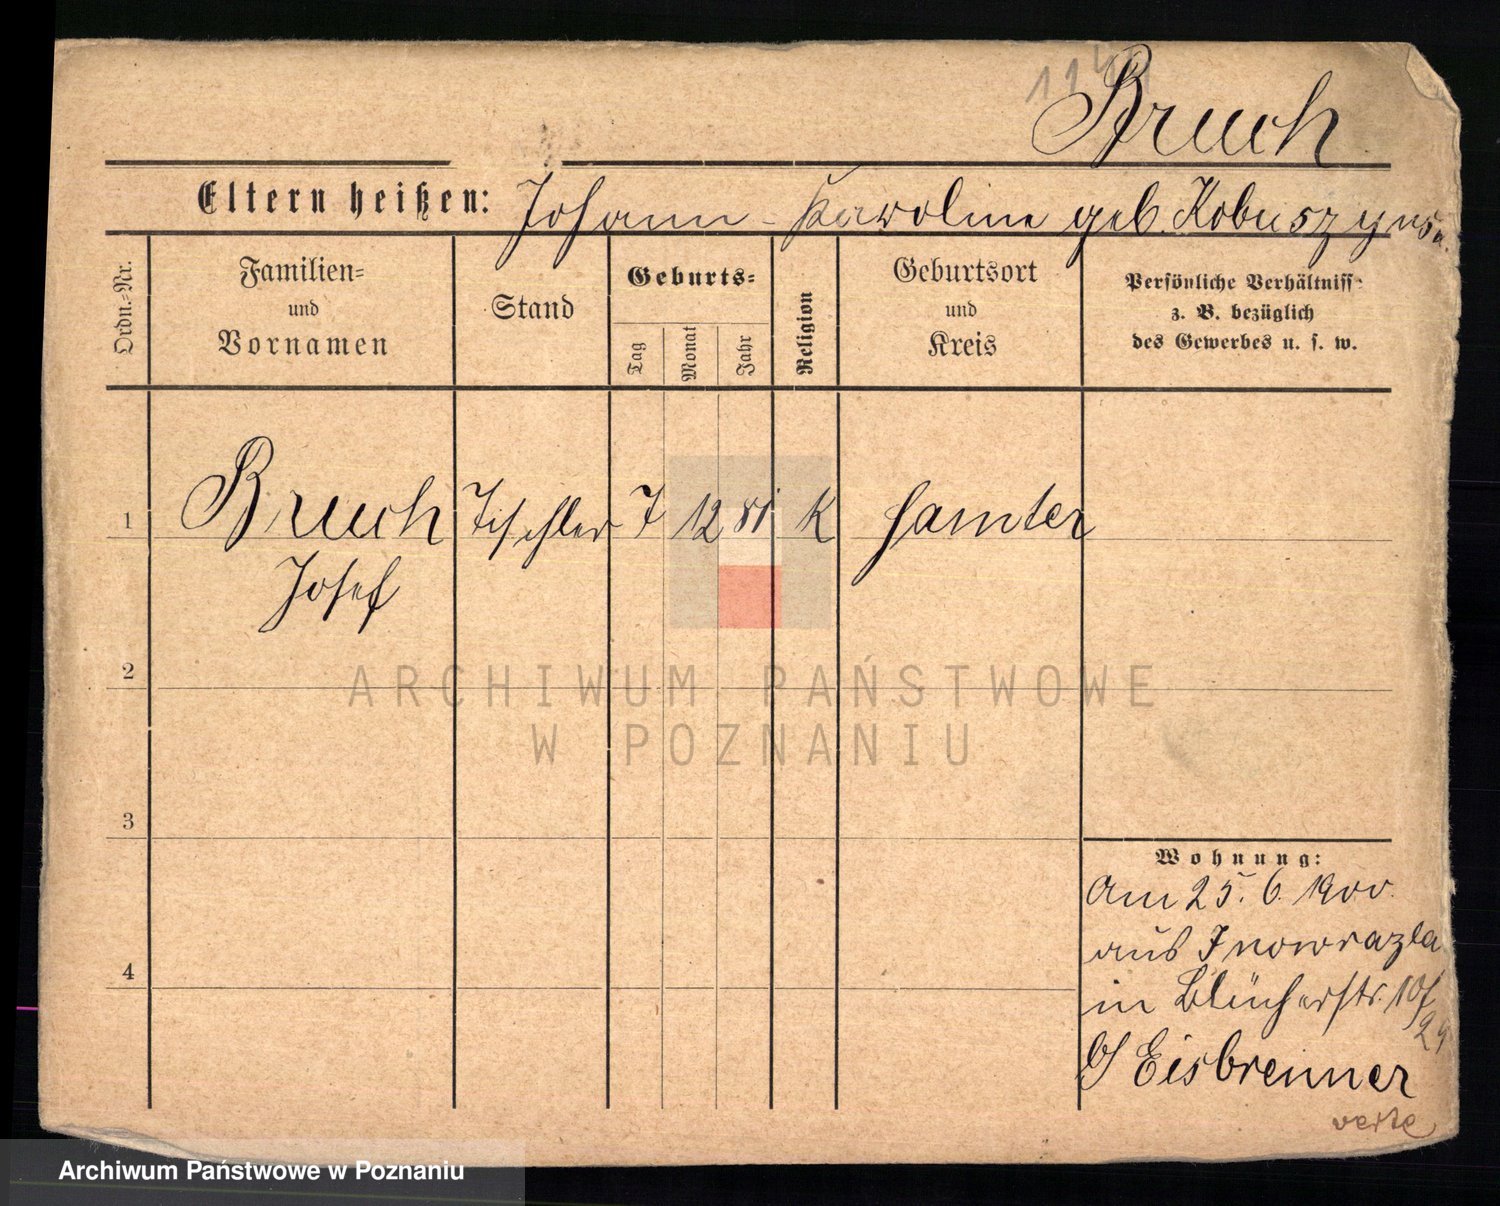 Bruch
Eltern heißen: Johann - Karoline geb. Kobuszyns
Ordn.-Nr.
Familien-
und
Vornamen
Stand
Geburts-
Tag
Monat
Jahr
Religion
Geburtsort
und
Kreis
Persönliche Verhältniss
z. B. bezüglich
des Gewerbes u. s. w.
1 Bruch Tischler 7 12 81 K Samter
Josef
2
3
4
Wohnung:
Am 25. 6. 1900
aus Inowrazla
in Blücherstr. 10/
29
b/ Eisbrenner
verte
ARCHIWUM PAŃSTWOWE
W POZNANIU
Archiwum Państwowe w Poznaniu